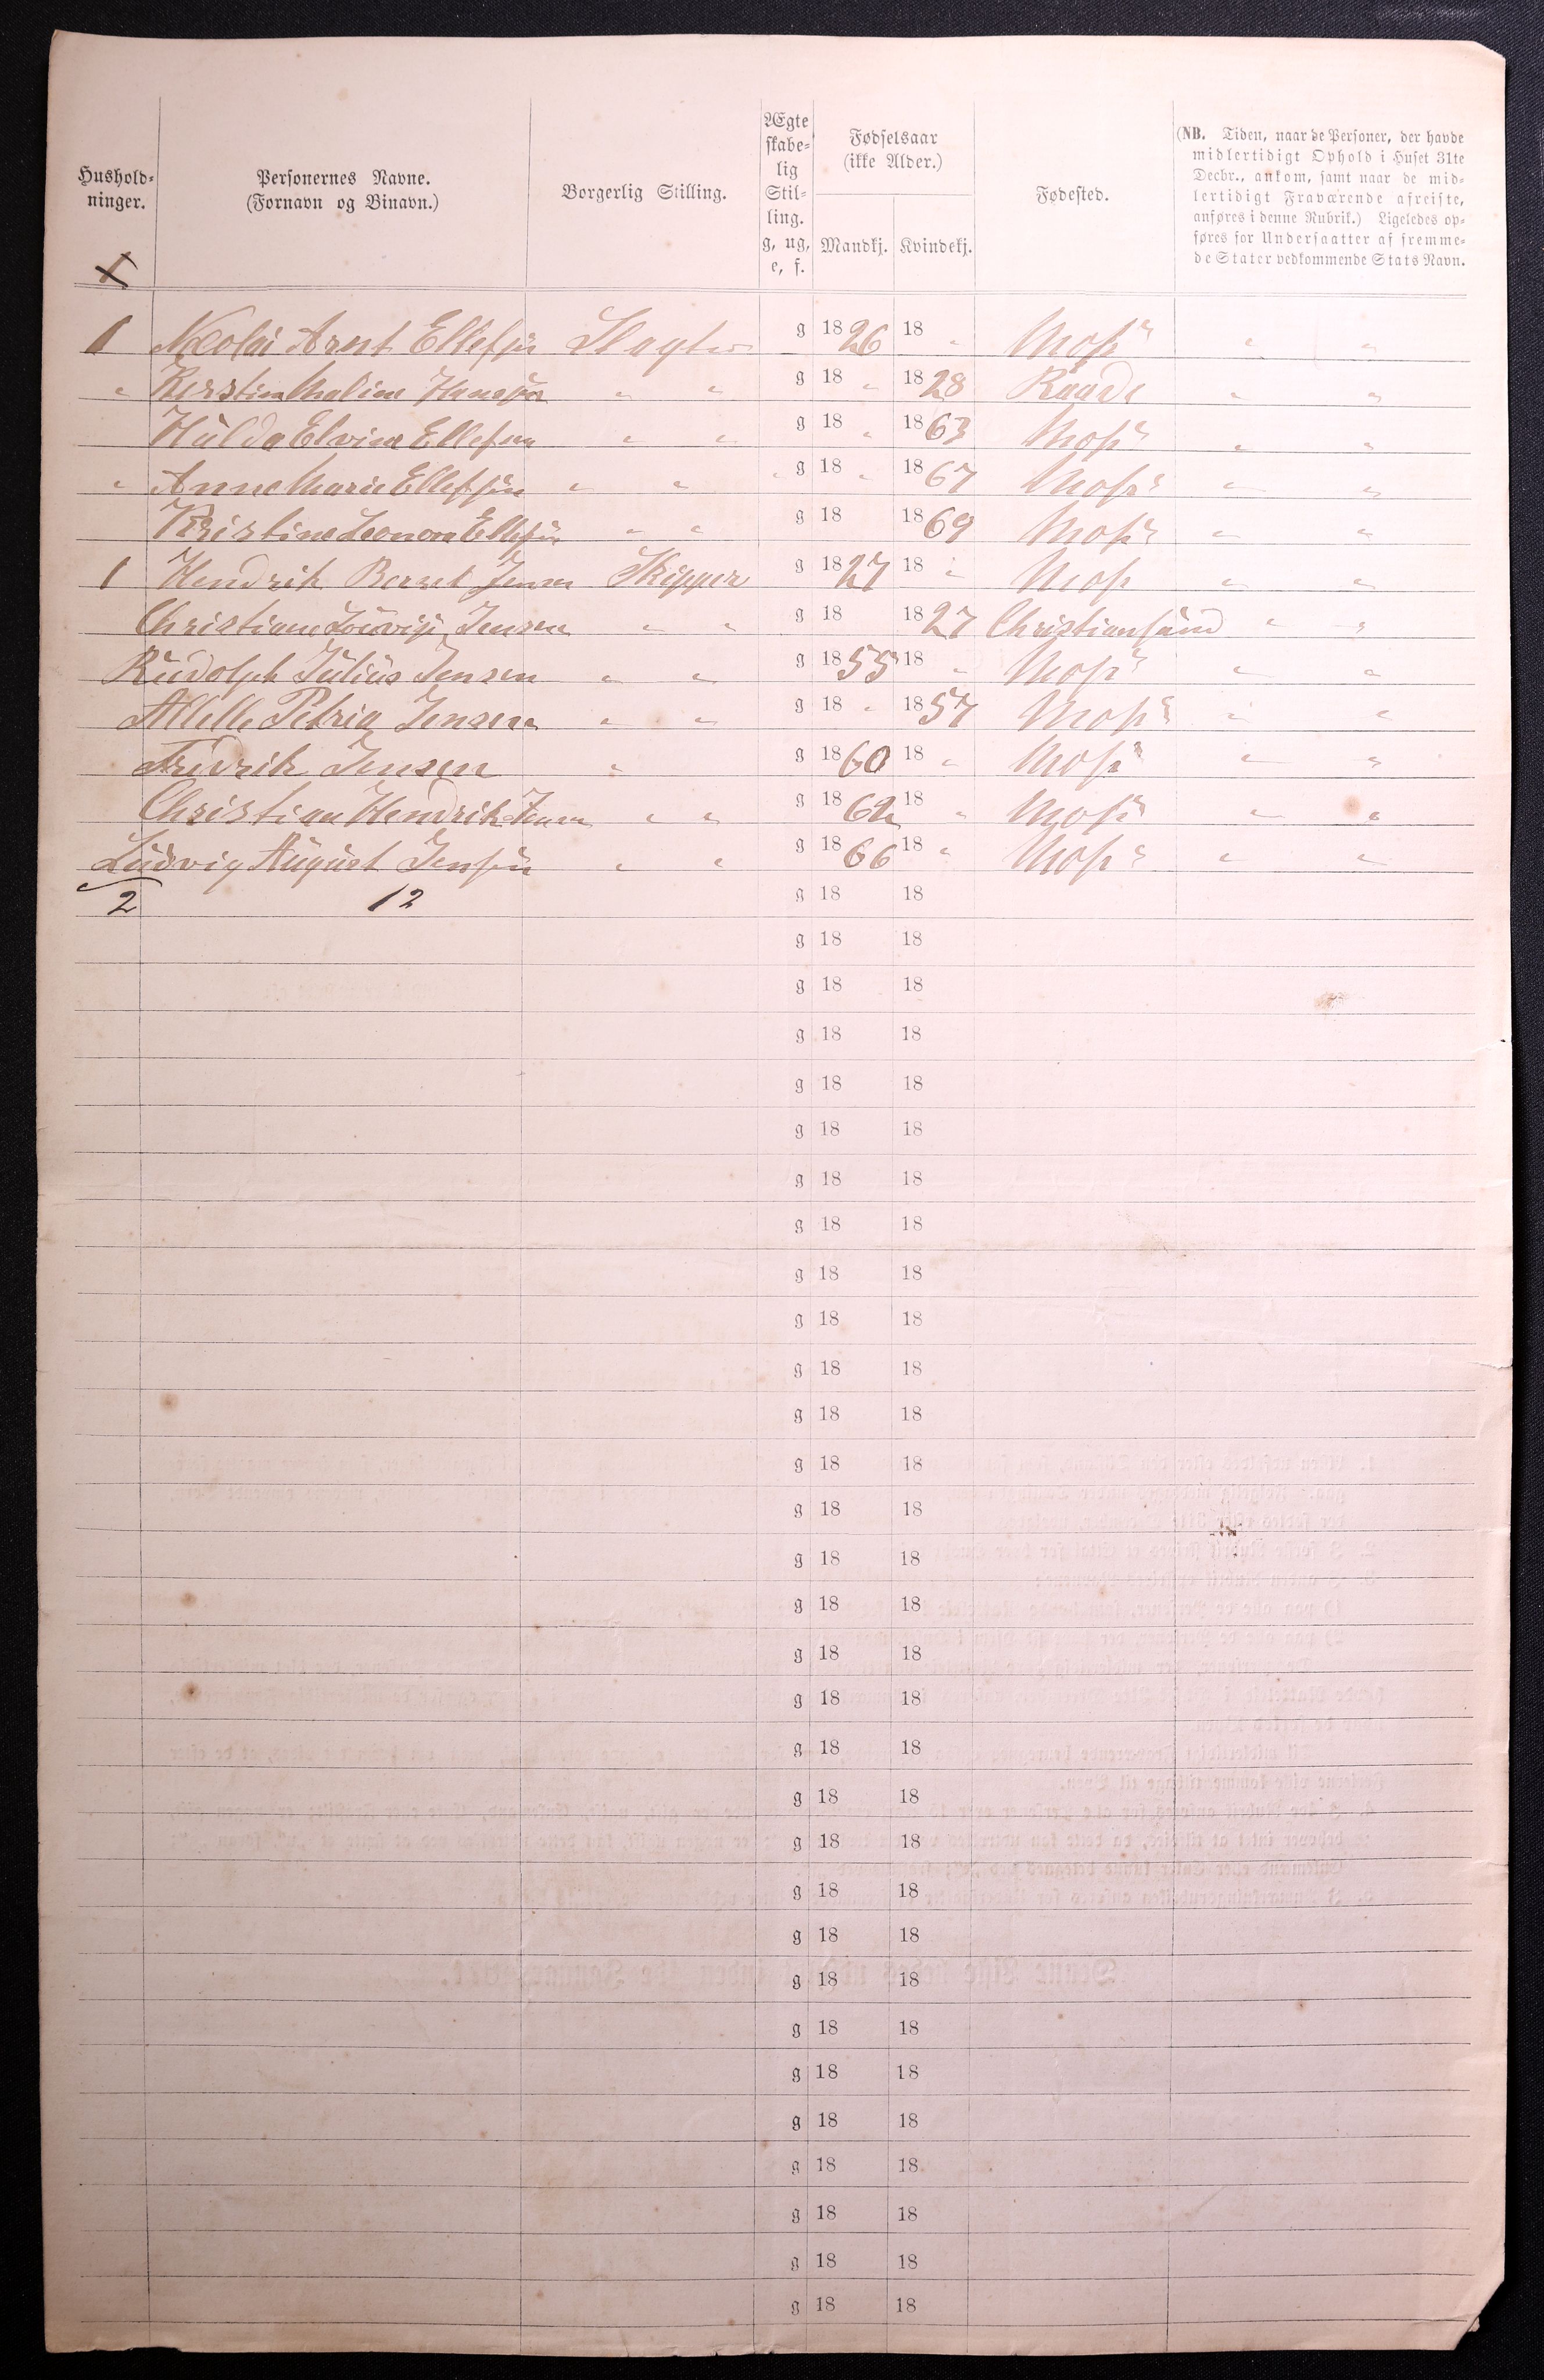 Hushold-
ninger.
Personernes Navne.
(Fornavn og Binavn.)
Borgerlig Stilling.
Ægte
skabe-
lig
Stil-
ling.
g, ug,
e, f.
Fødselsaar
(ikke Alder.)
Mandkj. Kvindekj.
Fødested.
(NB. Tiden, naar de Personer, der havde
midlertidigt Ophold i Huset 31te
Decbr., ankom, samt naar de mid-
lertidigt Fraværende afreiste,
anføres i denne Rubrik.) Ligeledes op-
føres for Undersaatter af fremme-
de Stater vedkommende Stats Navn.
1
1 Nicolai Arnt Ellefsen Slagter g 1826 18 " Moss " "
" Kirstin Maline Hansen " " g 18 " 1828 Raade " "
Hulda Elvine Ellefsen " " g 18 " 1863 Moss " "
" Anne Marie Ellefsen " " " g 18 " 1867 Moss " "
Kristine Leonora Ellefsen " " g 18 1869 Moss " "
1 Hendrik Jensen Skipper g 1827 18 " Moss " "
Christiane Lovise Jensen " " g 18 1827 Christiansund " "
Rudolph Julius Jensen " " g 1855 18 " Moss " "
Petria Jensen " " g 18 " 1857 Moss " "
Fredrik Jensen " g 1860 18 " Moss " "
Christian Hendrik Jensen " " g 1862 18 " Moss " "
Ludvig August Jensen " " g 1866 18 " Moss " "
2 12 g 18 18
g 18 18
g 18 18
g 18 18
g 18 18
g 18 18
g 18 18
g 18 18
g 18 18
g 18 18
g 18 18
g 18 18
g 18 18
g 18 18
g 18 18
g 18 18
g 18 18
g 18 18
g 18 18
g 18 18
g 18 18
g 18 18
g 18 18
g 18 18
g 18 18
g 18 18
g 18 18
g 18 18
g 18 18
g 18 18
g 18 18